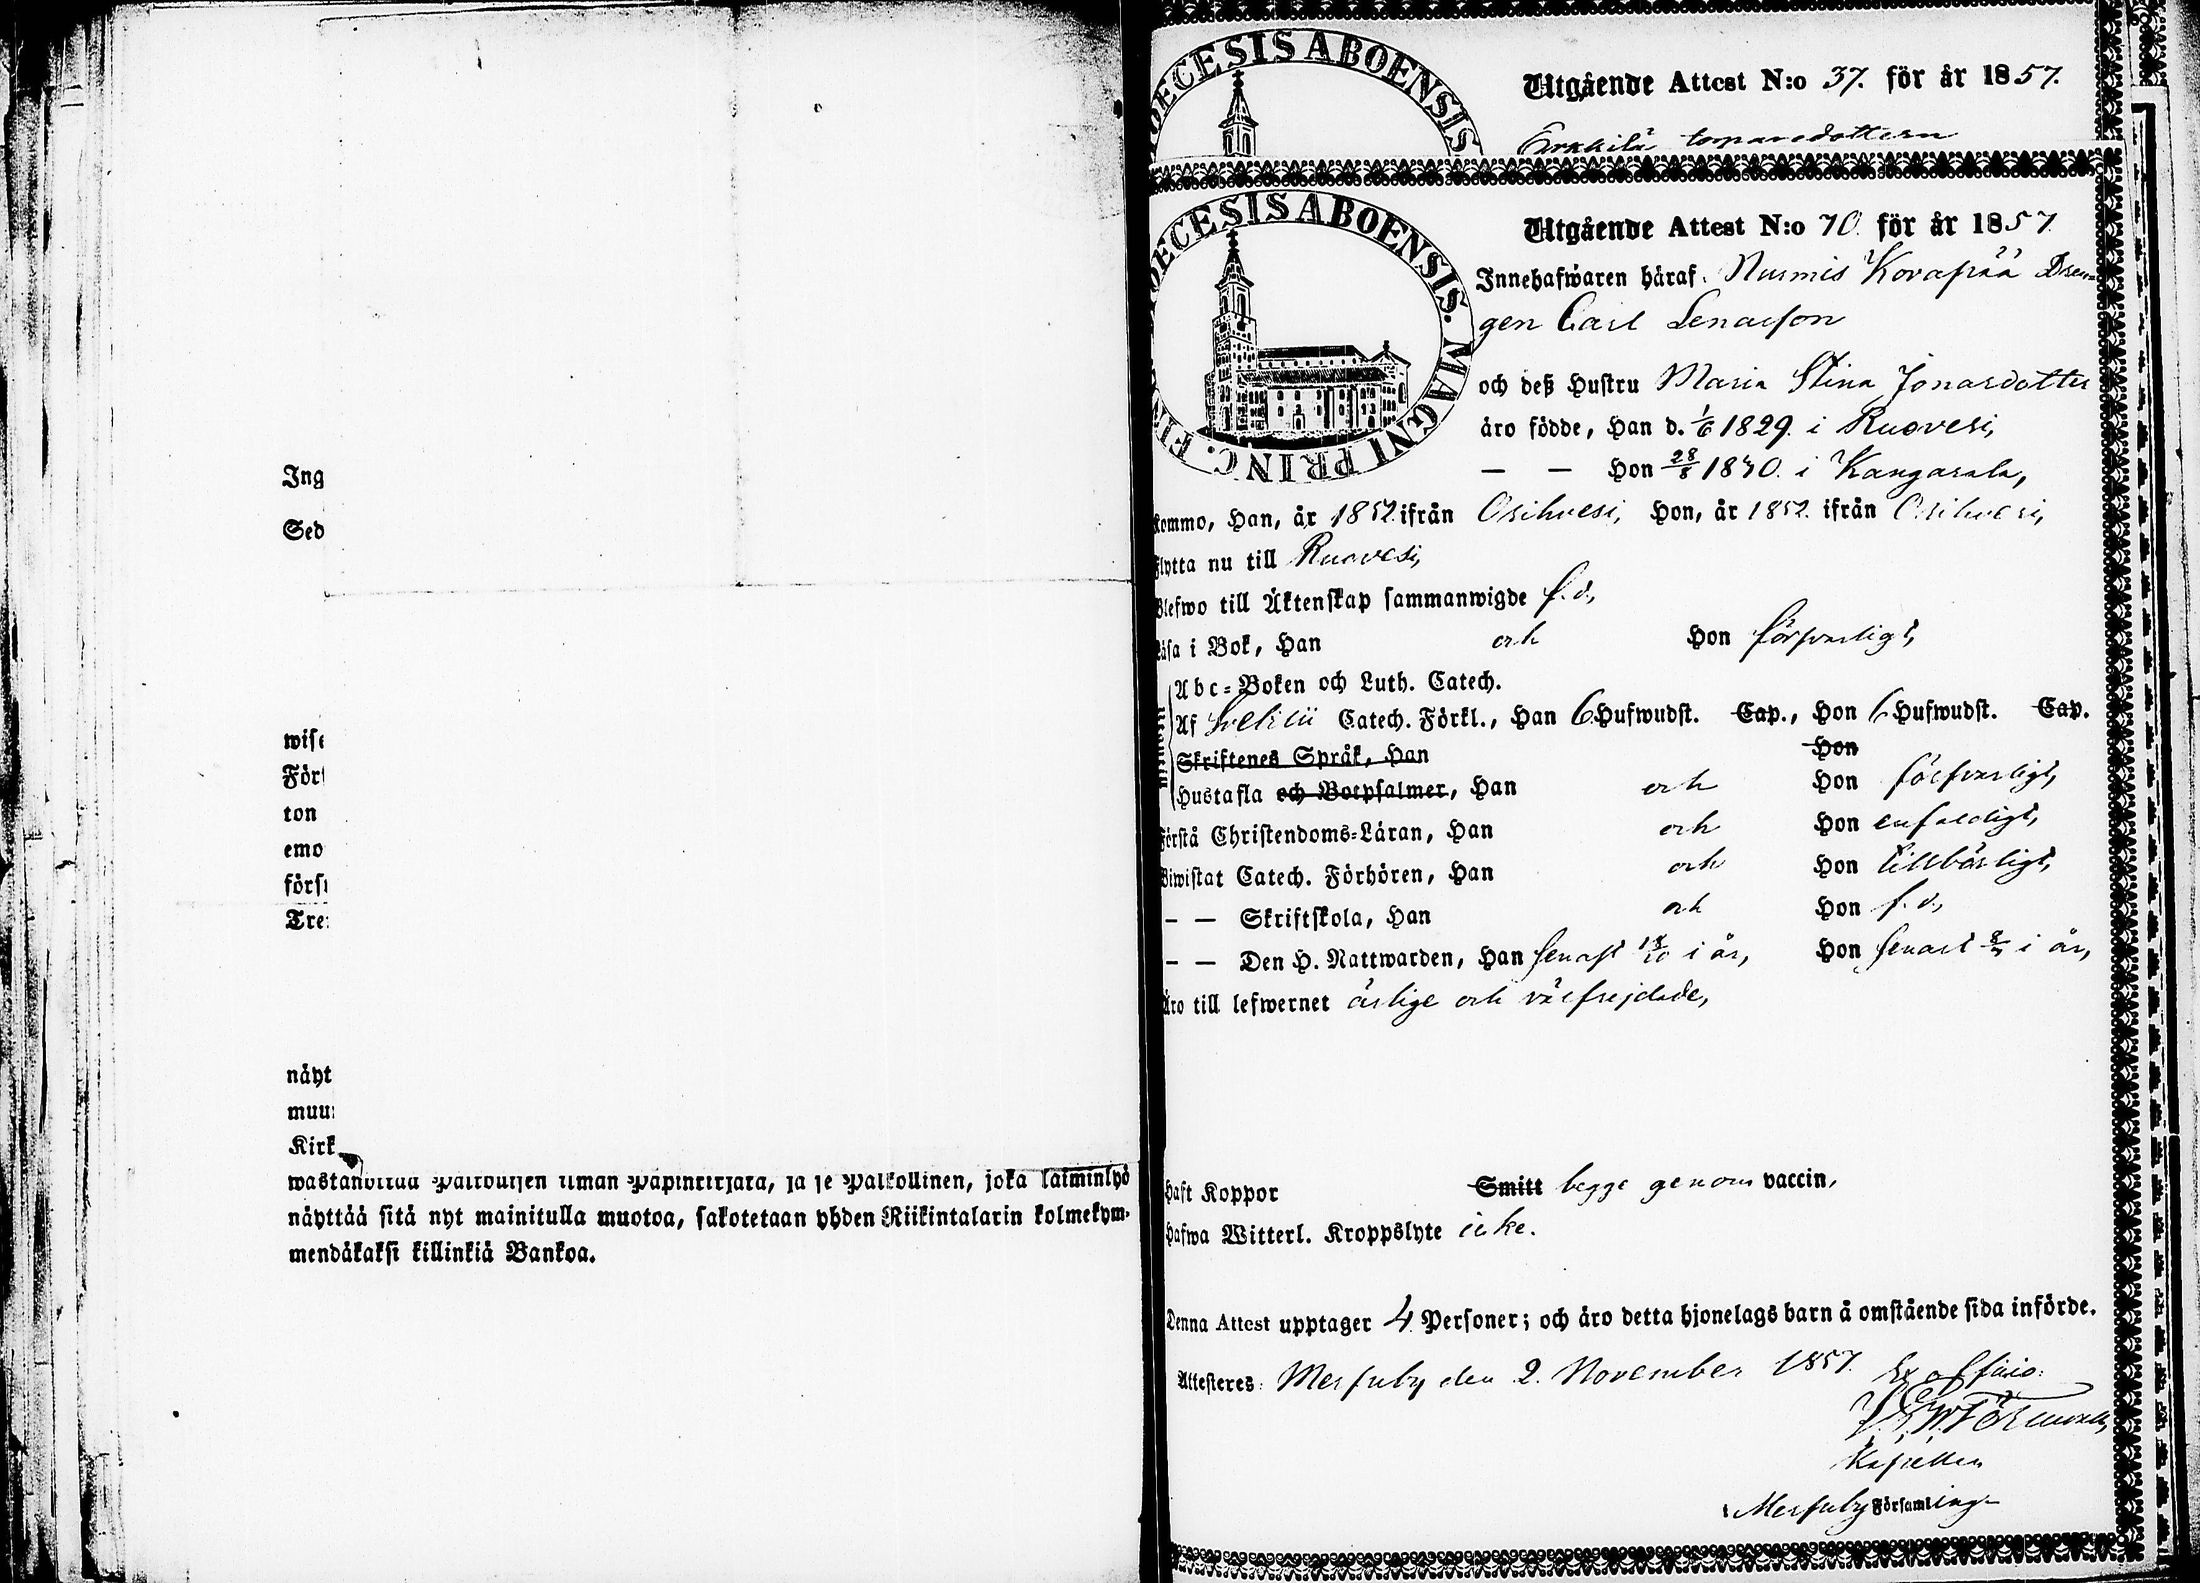 Ing
Sed
wise
För
ton
emo
förs
Tre
näyt
muu
Kirk
wastanottaa Palkoulisen ilman Papinkirjata, ja se Palkollinen, joka laiminlyö
näyttää sitä nyt mainitulla muotoa, sakotetaan yhden Riikintalarin kolmekym-
mendäkaksi killinkiä Bankoa.
DECESIS ABOENSIS
Utgående Attest N:o 37. för år 1857.
DECESIS ABOENSIS. MAGNI PRINC. FIN
Utgående Attest N:o 70. för år 1857
Innehafwaren häraf, Nurmis Korapää Dren-
gen Carl Lenason
och deß Hustru Maria Stina Jonasdotter
äro födde, Han d. 1/6 1829. i Ruovesi,
— — Hon 28/8 1830. i Kangasala,
kommo, Han, år 1852 ifrån Orihvesi, Hon, år 1852. ifrån Orihvesi,
flytta nu till Ruovesi,
Blefwo till Äktenskap sammanwigde f. d.,
Läsa i Bok, Han och Hon försvarligt,
Abc-Boken och Luth. Catech.
Af Svebilii Catech. Förkl., Han 6 Hufwudst. Cap., Hon 6 Hufwudst. Cap.
Skriftenes Språk, Han Hon
Hustafla och Botpsalmer, Han och Hon försvarligt,
Förstå Christendoms-Läran, Han och Hon enfaldigt,
Biwistat Catech. Förhören, Han och Hon tillbörligt,
— — Skriftskola, Han och Hon f. d.,
— — Den H. Nattwarden, Han senast 18/10 i år, Hon senast i år,
äro till lefwernet ärlige och välfrejdade,
Haft Koppor Smitt begge genom vaccin,
Hafwa Witterl. Kroppslyte icke.
Denna Attest upptager 4 Personer; och äro detta hjonelags barn å omstående sida införde.
Attesteres: Messuby den 2. November 1857. Ex officio:
Kapellan
Messuby Församling